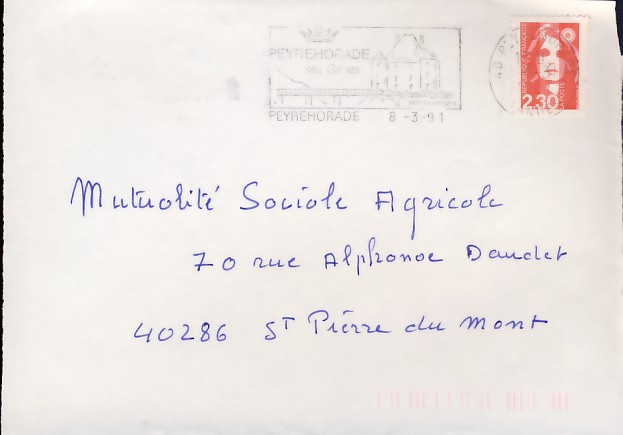 PEYREHORADE
PEYREHORADE 8 -3-91
REPUBLIQUE FRANÇAISE
2,30
LA POSTE
Mutualité Sociale Agricole
70 rue Alphonse Daudet
40286 ST Pierre du Mont